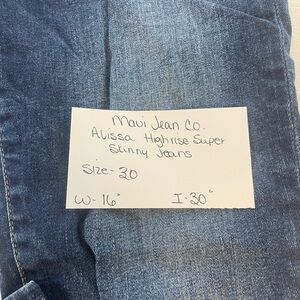 Maui Jean Co.
Alissa Highrise Super
Skinny Jeans
Size-20
W-16" I-30"